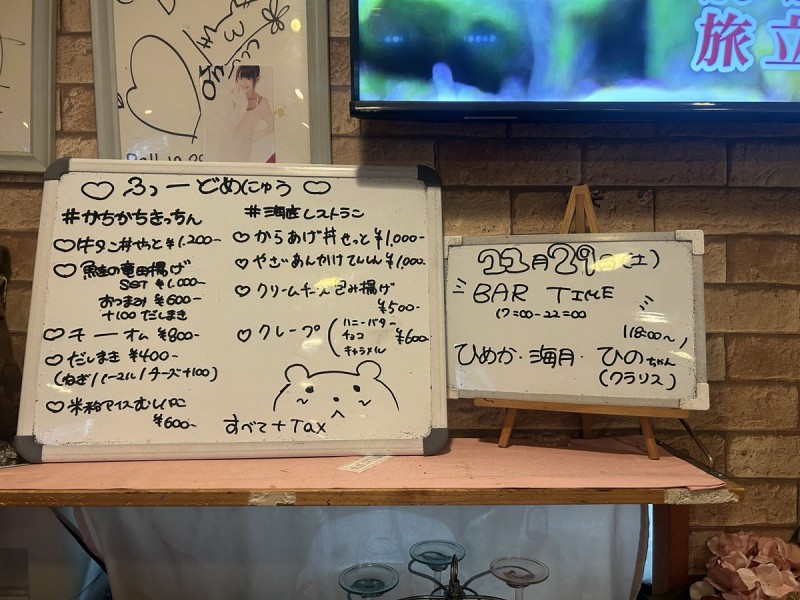 旅立
♡ ふっーどめにゅう ♡
#かちかちきっちん
♡牛タン丼せっと ¥1,200-
♡ 鮭の竜田揚げ
SET ¥1,000-
おつまみ ¥600-
+100 だしまき
♡ チーオム ¥800-
♡だしまき ¥400-
(ねぎ/ノーマル/チーズ+100)
♡ 米粉アイスむしパン
¥600-
#海底レストラン
♡ からあげ丼せっと ¥1,000-
♡ やさいあんかけてんしんはん ¥1,000-
♡ クリームチーズ包み揚げ
¥500-
♡ クレープ (ハニーバター
チョコ
キャラメル ¥600-
すべて+Tax
11月29日(土)
BAR TIME
17=00-22=00
(18:00~)
ひめか・海月・ひのちゃん
(クラリス)